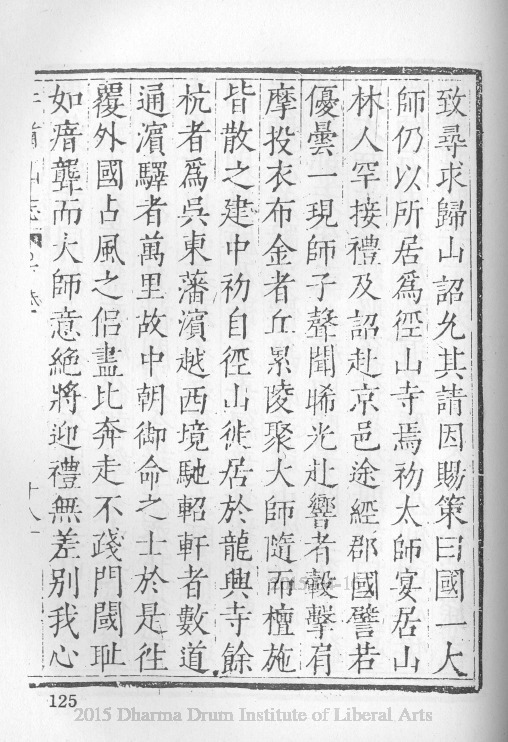 致尋求歸山詔允其請因賜策曰國一大
師仍以所居爲徑山寺焉初太師宴居山
林人罕接禮及詔赴京邑途經郡國譬若
優曇一現師子聲聞晞光赴響者轂擊肩
摩投衣布金者丘累陵聚大師隨而檀施
皆散之建中初自徑山徙居於龍興寺餘
杭者爲吳東藩濱越西境馳軺軒者數道
通濱驛者萬里故中朝御命之士於是徃
覆外國占風之侣盡比奔走不踐門閾耻
如瘖聾而大師意絶將迎禮無差别我心
山志
十八
125
2015 Dharma Drum Institute of Liberal Arts